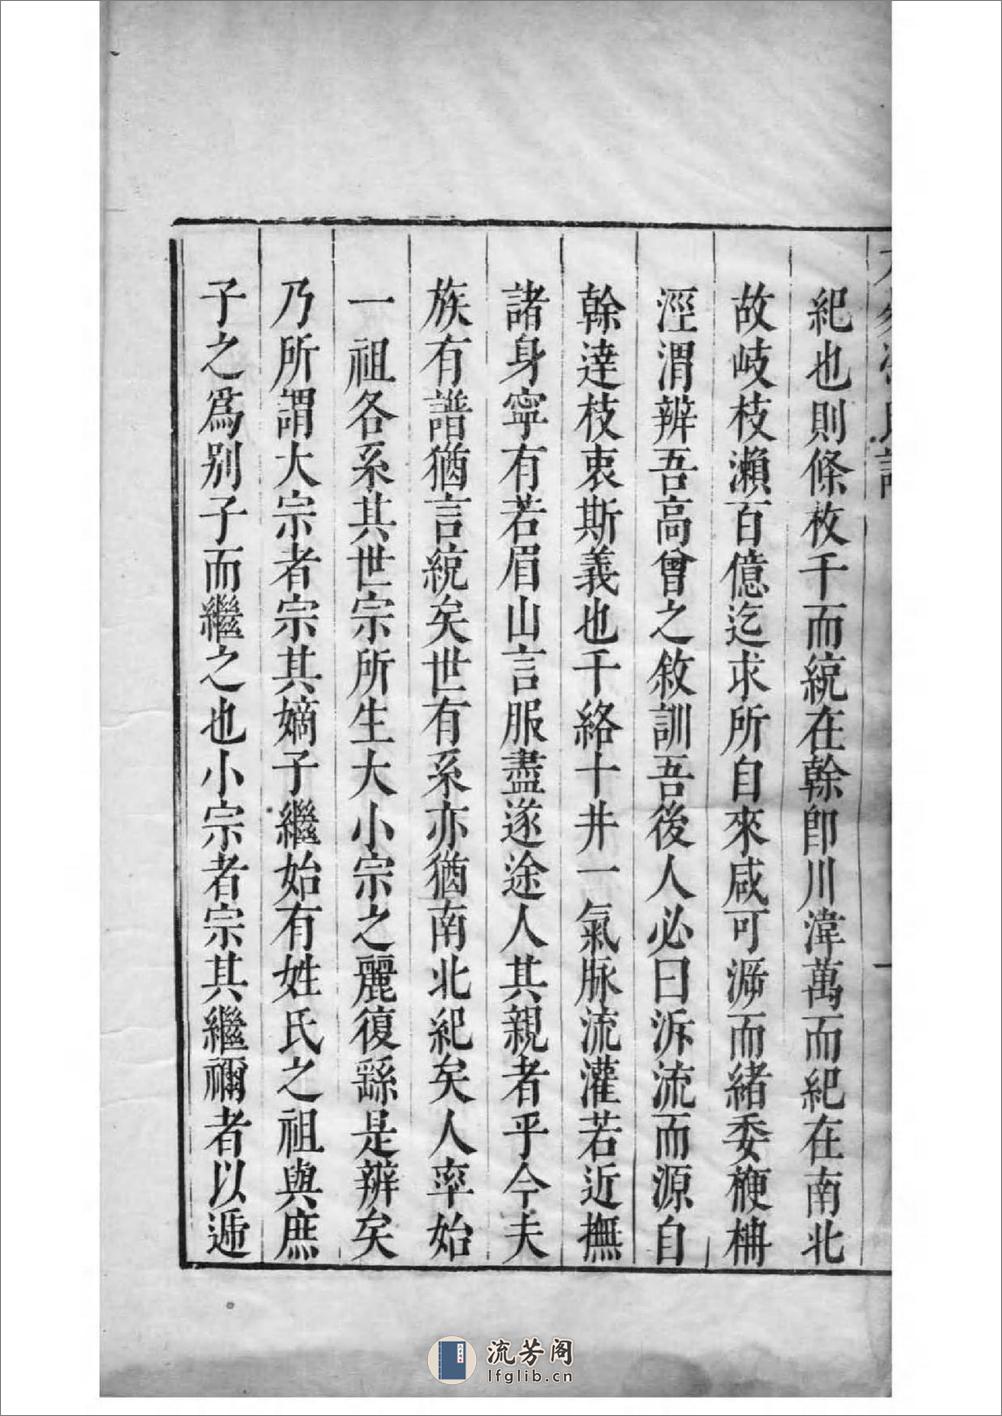 紀也則條枚千而統在幹卽川湋萬而紀在南北
故岐枝瀨百億迄求所自來咸可溯而緒委梗枏
涇渭辨吾高曾之敘訓吾後人必曰泝流而源自
幹達枝衷斯義也千絡十井一氣脈流灌若近撫
諸身寧有若眉山言服盡遂途人其親者乎今夫
族有譜猶言統矣世有系亦猶南北紀矣人率始
一祖各系其世宗所生大小宗之麗復繇是辨矣
乃所謂大宗者宗其嫡子繼始有姓氏之祖與庶
子之爲別子而繼之也小宗者宗其繼禰者以遞
流芳阁
lfglib.cn